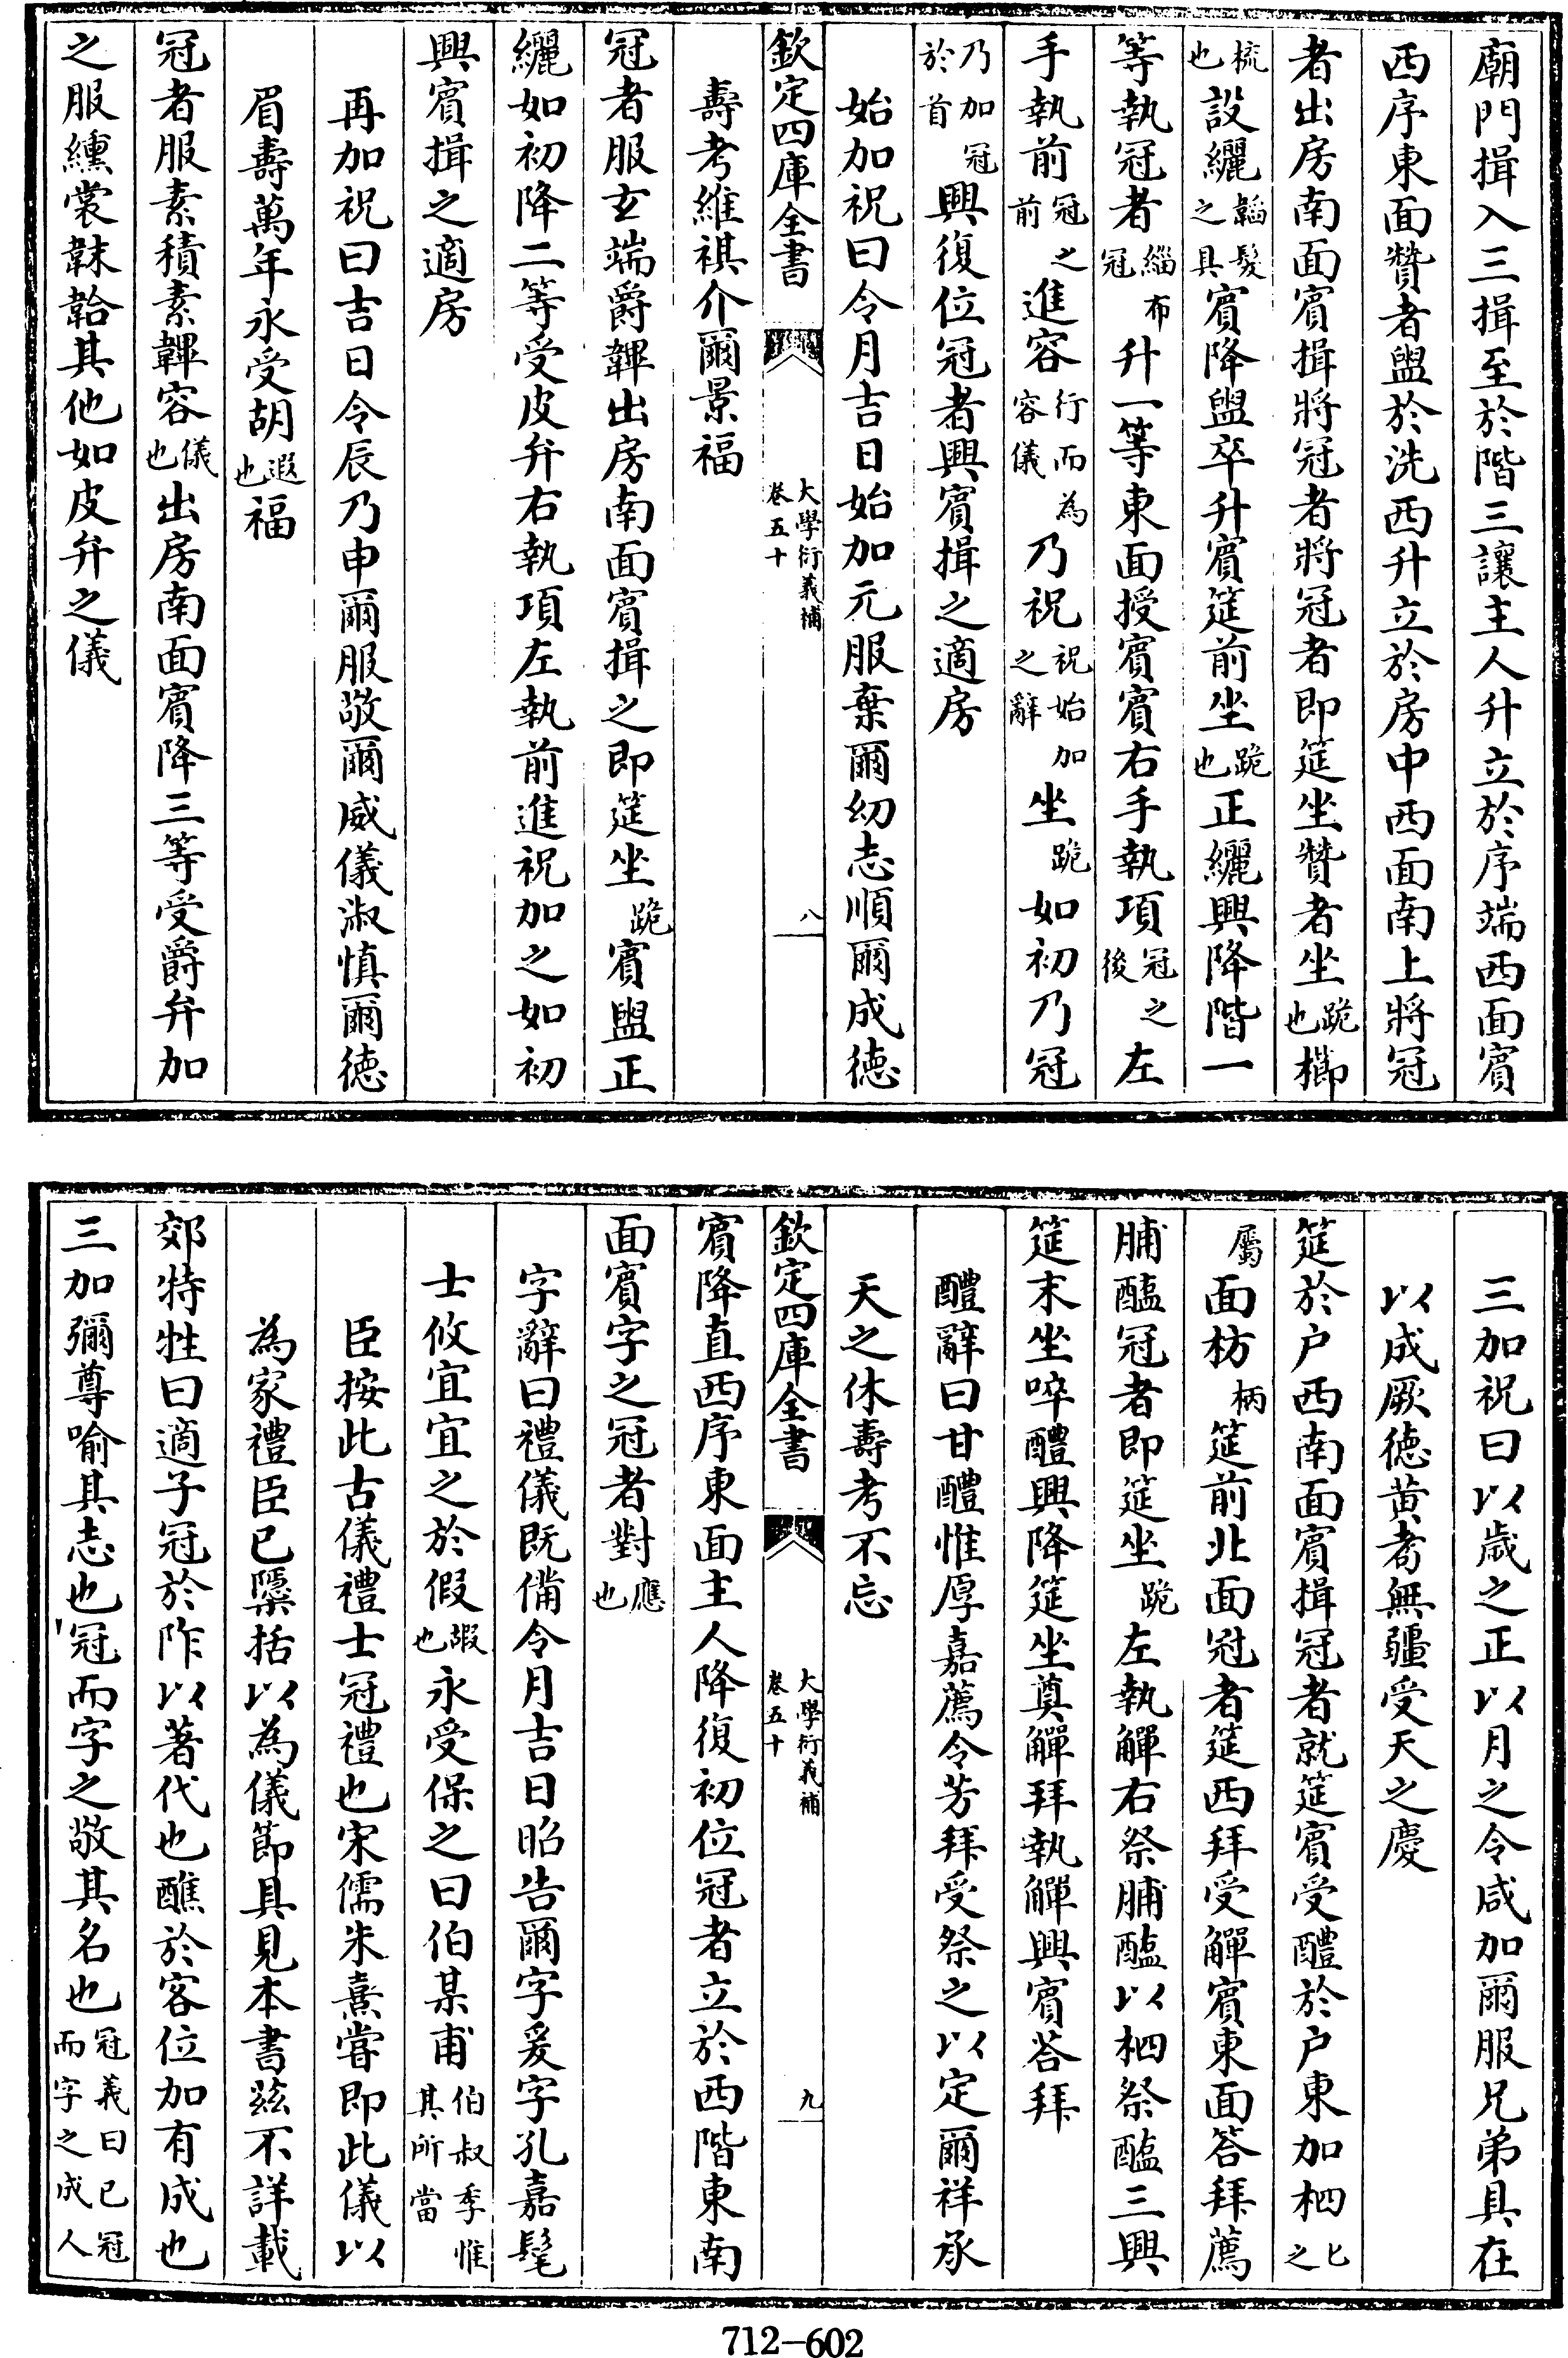 廟門揖入三揖至於階三讓主人升立於序端西面賓
西序東面贊者盥於洗西升立於房中西面南上將冠
者出房南面賓揖將冠者將冠者即筵坐贊者坐跪也櫛
梳也設纚韜髮之具賓降盥卒升賓筵前坐跪也正纚興降階一
等執冠者緇布冠升一等東面授賓賓右手執項冠之後左
手執前冠之前進容行而為容儀乃祝祝始加之辭坐跪如初乃冠
乃加冠於首興復位冠者興賓揖之適房
始加祝曰令月吉日始加元服棄爾幼志順爾成德
欽定四庫全書 大學衍義補卷五十 八
壽考維祺介爾景福
冠者服玄端爵韠出房南面賓揖之即筵坐跪賓盥正
纚如初降二等受皮弁右執項左執前進祝加之如初
興賓揖之適房
再加祝曰吉日令辰乃申爾服敬爾威儀淑慎爾德
眉壽萬年永受胡遐也福
冠者服素積素韠容儀也出房南面賓降三等受爵弁加
之服纁裳韎韐其他如皮弁之儀
三加祝曰以歲之正以月之令咸加爾服兄弟具在
以成厥德黃耇無疆受天之慶
筵於户西南面賓揖冠者就筵賓受醴於户東加柶匕之
屬面枋柄筵前北面冠者筵西拜受觶賓東面答拜薦
脯醢冠者即筵坐跪左執觶右祭脯醢以柶祭醢三興
筵末坐啐醴興降筵坐奠觶拜執觶興賓荅拜
醴辭曰甘醴惟厚嘉薦令芳拜受祭之以定爾祥承
天之休壽考不忘
欽定四庫全書 大學衍義補卷五十 九
賓降直西序東面主人降復初位冠者立於西階東南
面賓字之冠者對應也
字辭曰禮儀既備令月吉日昭告爾字爰字孔嘉髦
士攸宜宜之於假嘏也永受保之曰伯某甫伯叔季惟其所當
臣按此古儀禮士冠禮也宋儒朱熹嘗即此儀以
為家禮臣已檃括以為儀節具見本書茲不詳載
郊特牲曰適子冠於阼以著代也醮於客位加有成也
三加彌尊喻其志也冠而字之敬其名也冠義曰已冠而字之成人
712–602